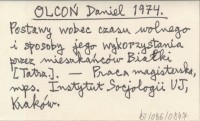 OLCOŃ Daniel 1974.
Postawy wobec czasu wolnego
i sposoby jego wykorzystania
przez mieszkańców Białki
[Tatra]. — Praca magisterska,
mps. Instytut Socjologii UJ,
Kraków.